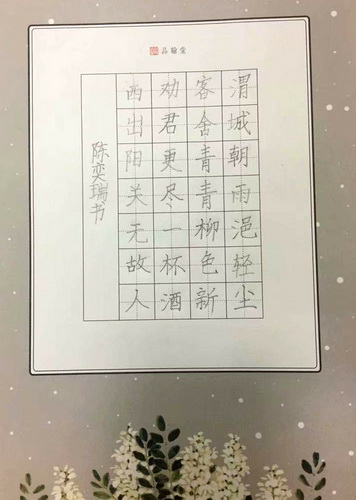 品翰堂
渭城朝雨浥轻尘
客舍青青柳色新
劝君更尽一杯酒
西出阳关无故人
陈奕瑞书